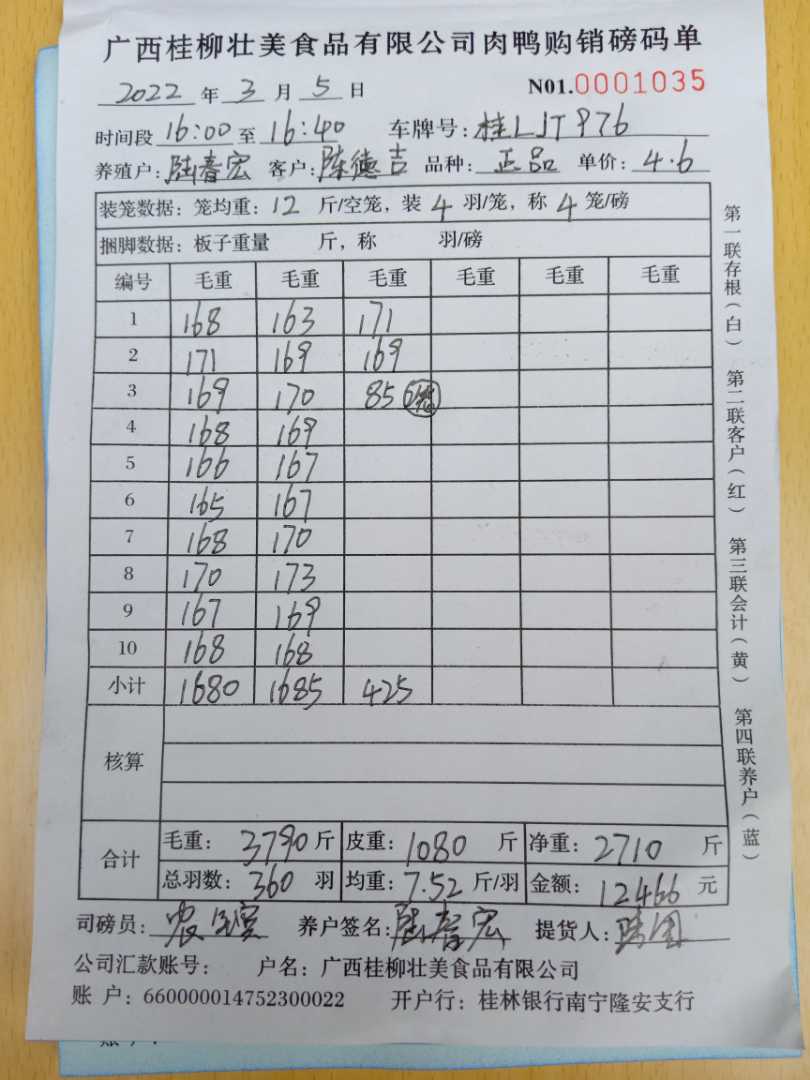 广西桂柳壮美食品有限公司肉鸭购销磅码单
2022 年 3 月 5 日 N01.0001035
时间段 16:00 至 16:40 车牌号: 桂LJT976
养殖户: 陆春宏 客户: 陈德吉 品种: 正品 单价: 4.6
装笼数据: 笼均重: 12 斤/空笼, 装 4 羽/笼, 称 4 笼/磅
捆脚数据: 板子重量 斤, 称 羽/磅
编号 毛重 毛重 毛重 毛重 毛重 毛重
1 168 163 171
2 171 169 169
3 169 170 85
4 168 169
5 166 167
6 165 167
7 168 170
8 170 173
9 167 169
10 168 168
小计 1680 1685 425
核算
合计 毛重: 3790 斤 皮重: 1080 斤 净重: 2710 斤
总羽数: 360 羽 均重: 7.52 斤/羽 金额: 12466 元
司磅员: 养户签名: 陆春宏 提货人:
公司汇款账号: 户名: 广西桂柳壮美食品有限公司
账 户: 660000014752300022 开户行: 桂林银行南宁隆安支行
第一联存根(白) 第二联客户(红) 第三联会计(黄) 第四联养户(蓝)